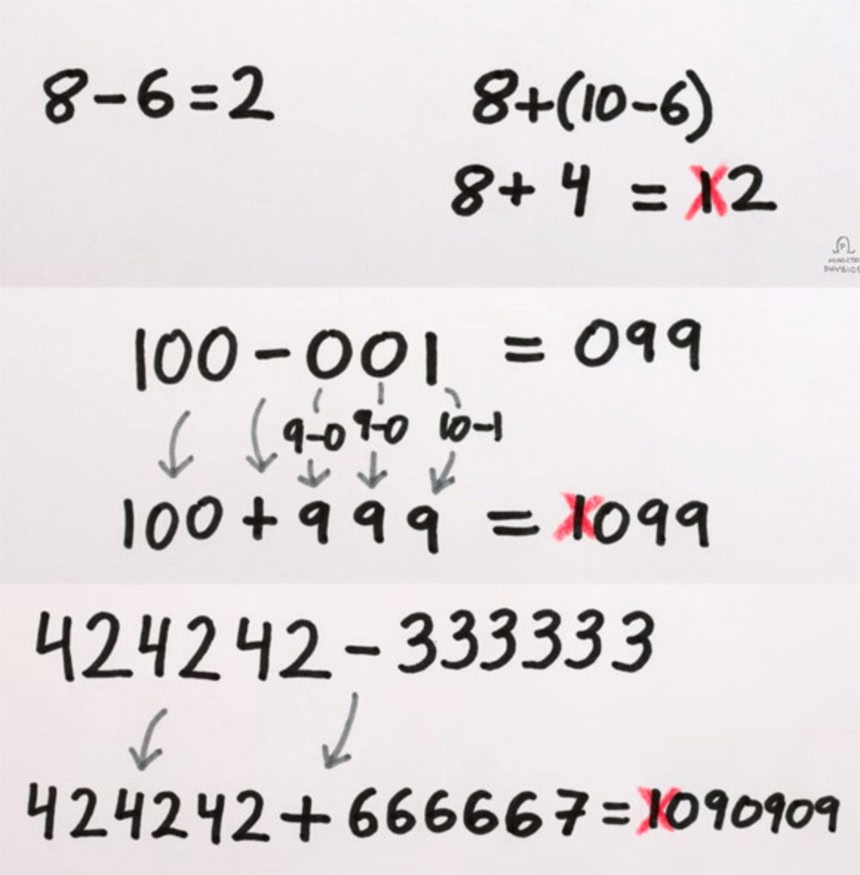 8-6=2
8+(10-6)
8+ 4 = 12
MINUTE
PHYSICS
100-001 = 099
9-0 9-0 10-1
100+999 = 1099
424242-333333
424242+666667=1090909